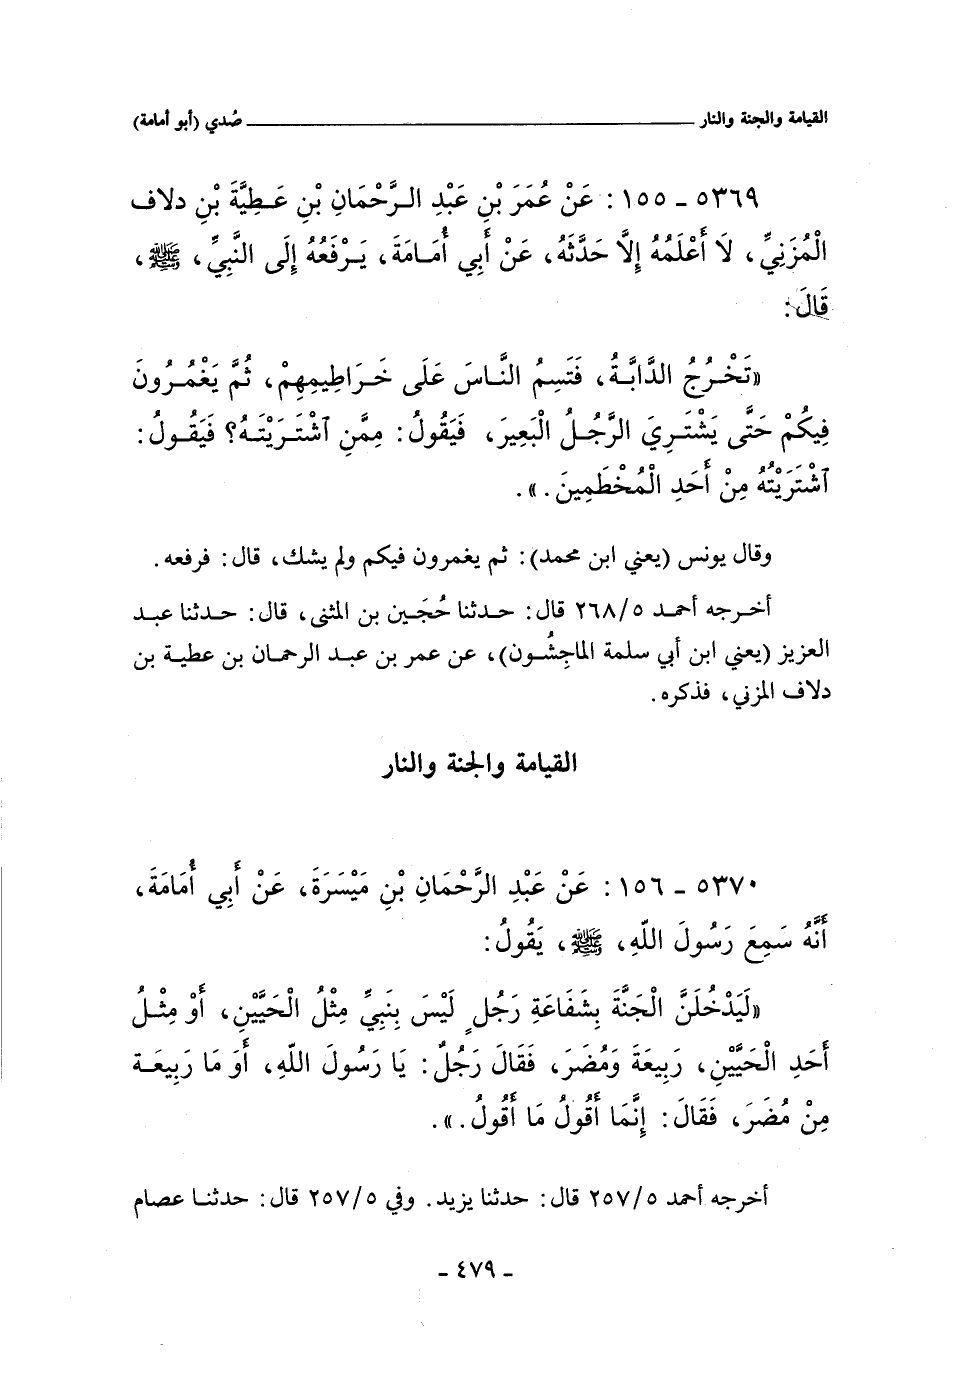 القيامة والجنة والنار ــــــــــ صُدي (أبو أمامة)
٥٣٦٩ ـ ١٥٥ : عَنْ عُمَرَ بْنِ عَبْدِ الرَّحْمَانِ بْنِ عَطِيَّةَ بْنِ دلاف
الْمُزَنِيِّ، لَا أَعْلَمُهُ إِلَّا حَدَّثَهُ، عَنْ أَبِي أُمَامَةَ، يَرْفَعُهُ إِلَى النَّبِيِّ، ﷺ،
قَالَ:
«تَخْرُجُ الدَّابَّةُ، فَتَسِمُ النَّاسَ عَلَى خَرَاطِيمِهِمْ، ثُمَّ يَغْمُرُونَ
فِيكُمْ حَتَّى يَشْتَرِيَ الرَّجُلُ الْبَعِيرَ، فَيَقُولُ: مِمَّنِ ٱشْتَرَيْتَهُ؟ فَيَقُولُ:
ٱشْتَرَيْتُهُ مِنْ أَحَدِ الْمُخْطَمِينَ.».
وقال يونس (يعني ابن محمد): ثم يغمرون فيكم ولم يشك، قال: فرفعه.
أخرجه أحمد ٢٦٨/٥ قال: حدثنا حُجَين بن المثنى، قال: حدثنا عبد
العزيز (يعني ابن أبي سلمة الماجِشُون)، عن عمر بن عبد الرحمان بن عطية بن
دلاف المزني، فذكره.
القيامة والجنة والنار
٥٣٧٠ ـ ١٥٦ : عَنْ عَبْدِ الرَّحْمَانِ بْنِ مَيْسَرَةَ، عَنْ أَبِي أُمَامَةَ،
أَنَّهُ سَمِعَ رَسُولَ اللّهِ، ﷺ، يَقُولُ:
«لَيَدْخُلَنَّ الْجَنَّةَ بِشَفَاعَةِ رَجُلٍ لَيْسَ بِنَبِيٍّ مِثْلُ الْحَيَّيْنِ، أَوْ مِثْلُ
أَحَدِ الْحَيَّيْنِ، رَبِيعَةَ وَمُضَرَ، فَقَالَ رَجُلٌ: يَا رَسُولَ اللّهِ، أَوَ مَا رَبِيعَة
مِنْ مُضَرَ، فَقَالَ: إِنَّمَا أَقُولُ مَا أَقُولُ.».
أخرجه أحمد ٢٥٧/٥ قال: حدثنا يزيد. وفي ٢٥٧/٥ قال: حدثنا عصام
ـ ٤٧٩ ـ